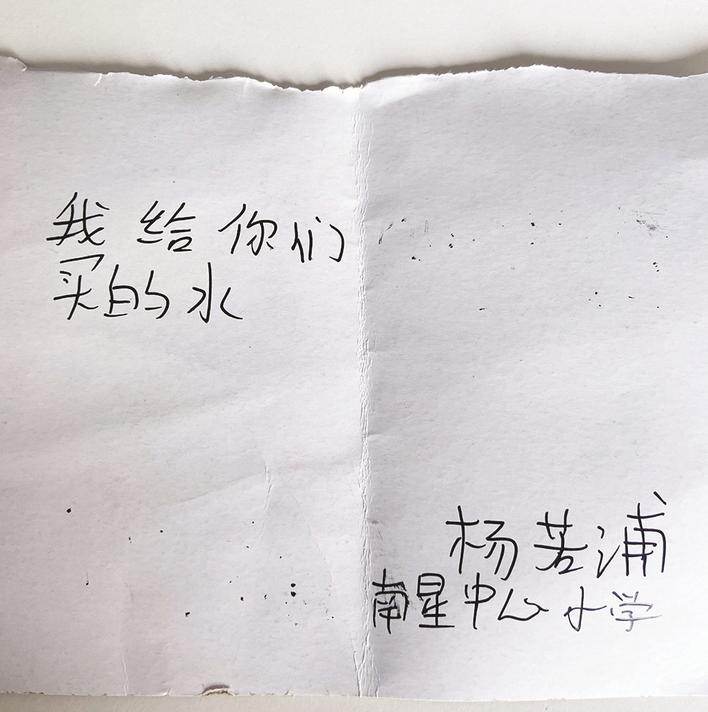 我给你们
买的水
杨若浦
南星中心小学